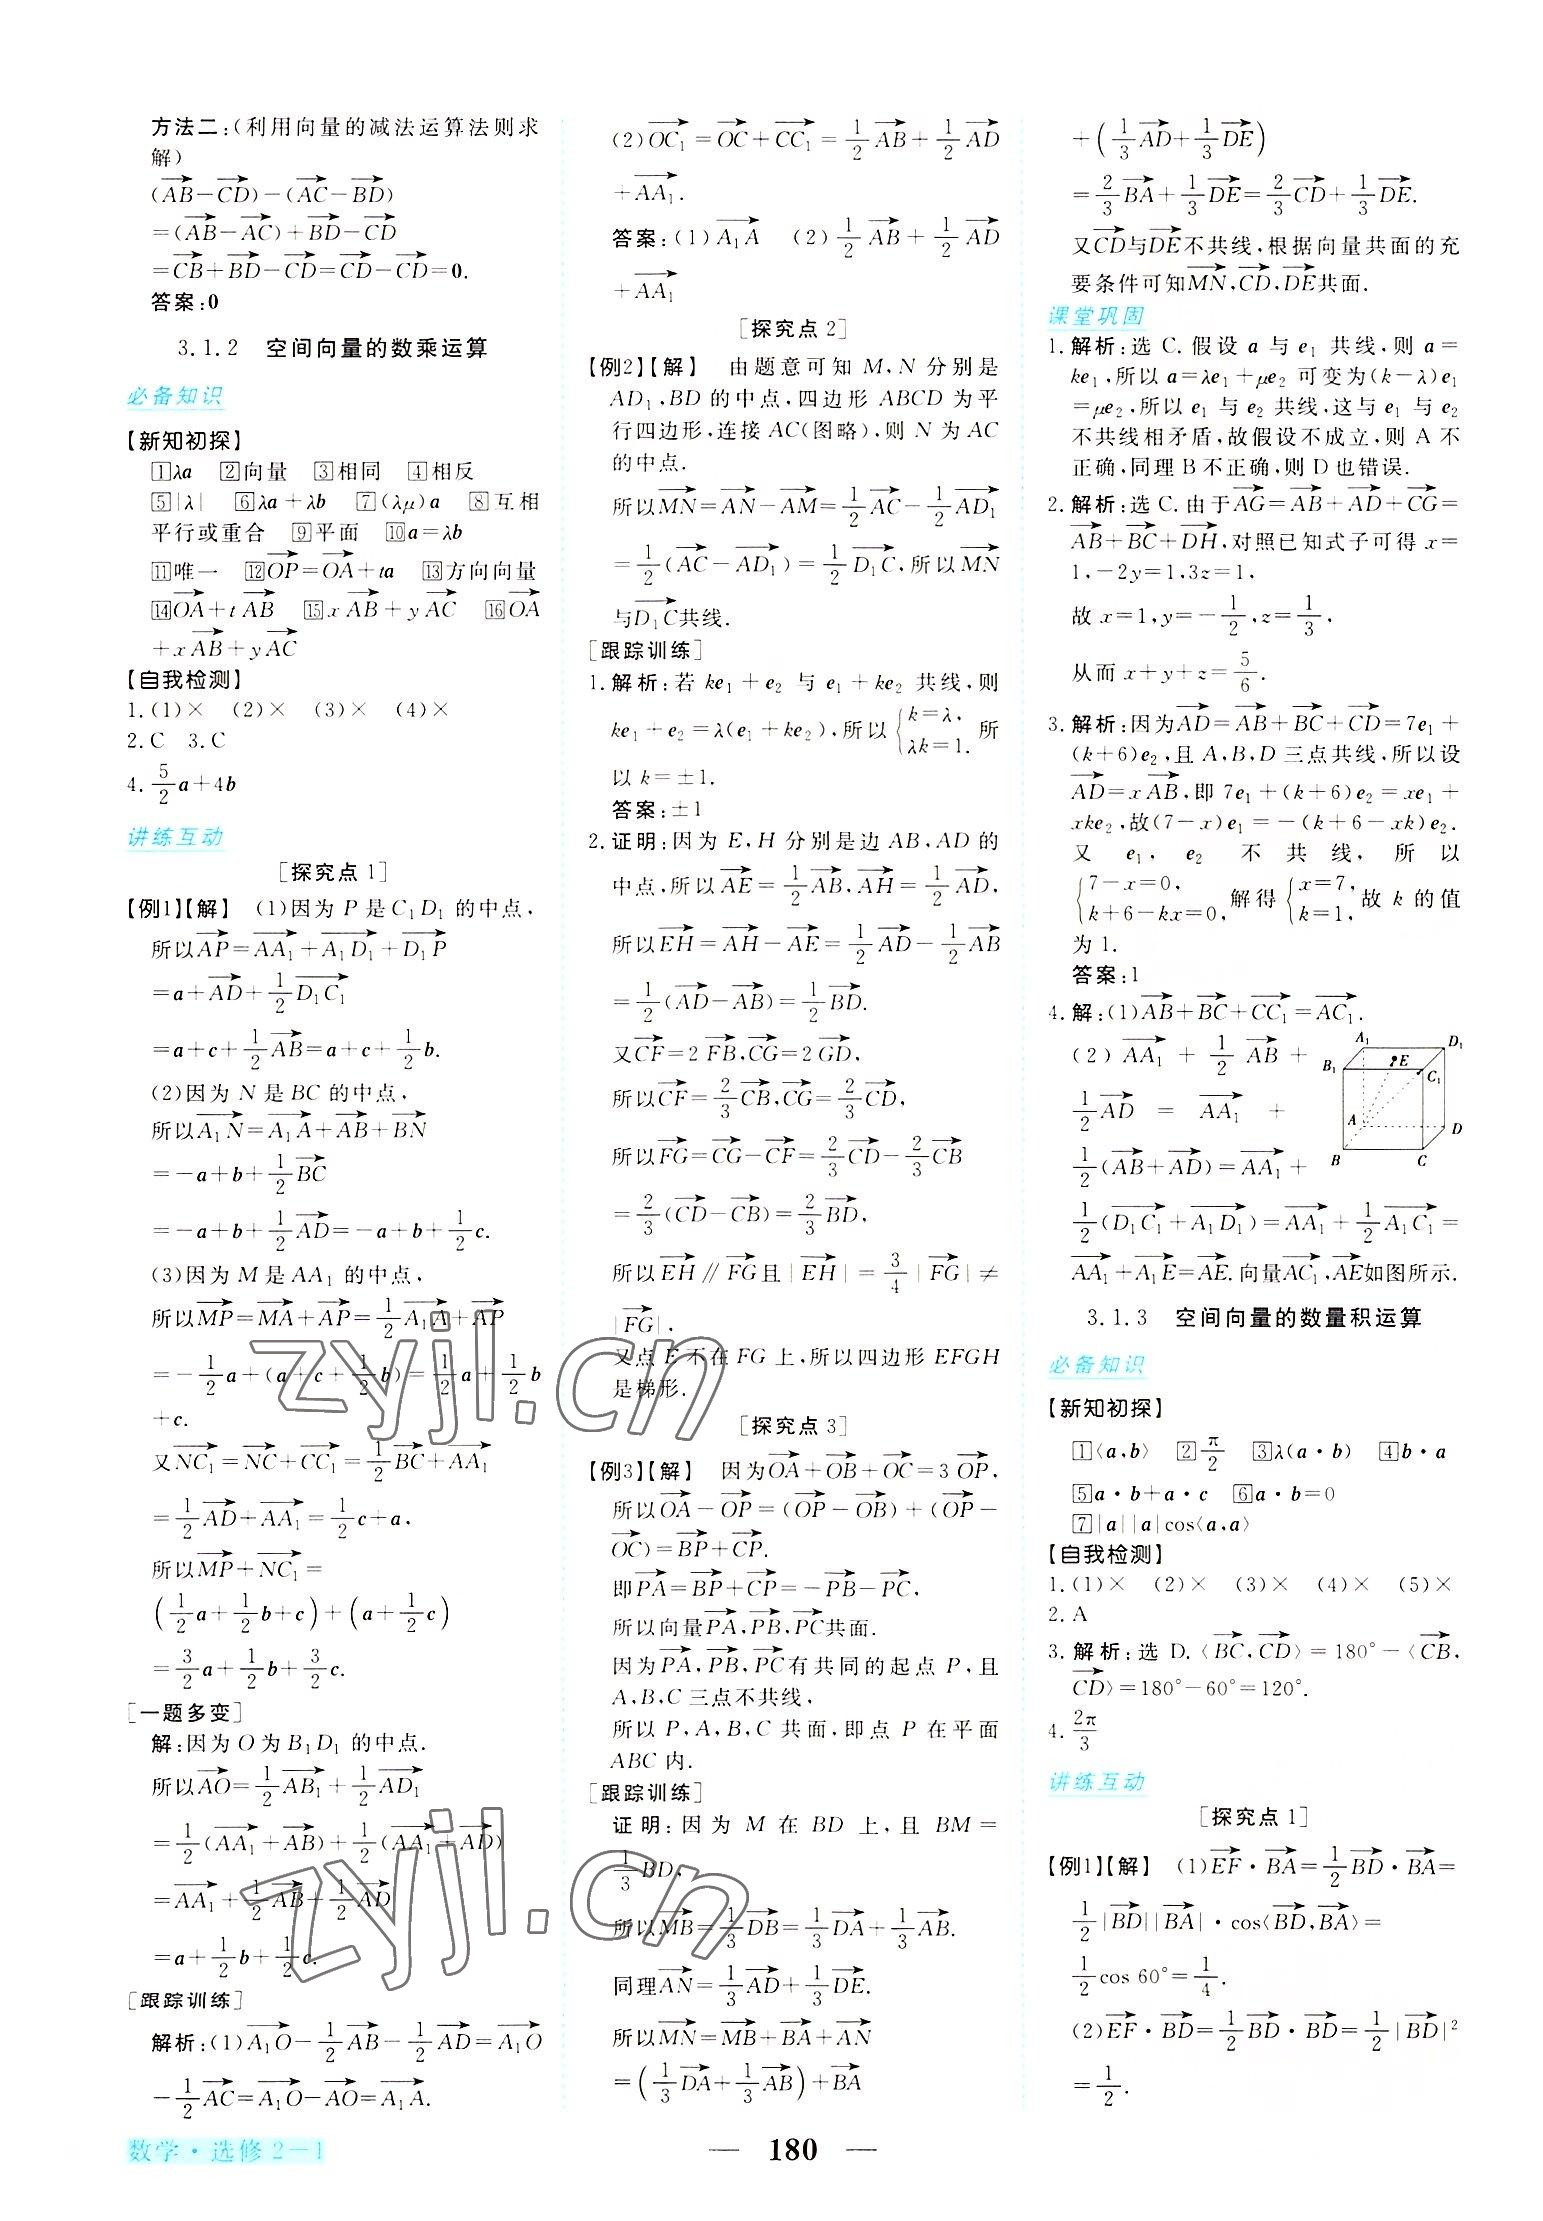 方法二:(利用向量的减法运算法则求
解)
(AB−CD)−(AC−BD)
=(AB−AC)+BD−CD
=CB+BD−CD=CD−CD=0.
答案:0
3.1.2 空间向量的数乘运算
必备知识
【新知初探】
①λa ②向量 ③相同 ④相反
⑤|λ| ⑥λa+λb ⑦(λμ)a ⑧互相
平行或重合 ⑨平面 ⑩a=λb
⑪唯一 ⑫OP=OA+ta ⑬方向向量
⑭OA+tAB ⑮xAB+yAC ⑯OA
+xAB+yAC
【自我检测】
1.(1)× (2)× (3)× (4)×
2.C 3.C
4.5/2a+4b
讲练互动
[探究点1]
【例1】【解】 (1)因为P是C₁D₁的中点,
所以AP=AA₁+A₁D₁+D₁P
=a+AD+1/2D₁C₁
=a+c+1/2AB=a+c+1/2b.
(2)因为N是BC的中点,
所以A₁N=A₁A+AB+BN
=−a+b+1/2BC
=−a+b+1/2AD=−a+b+1/2c.
(3)因为M是AA₁的中点,
所以MP=MA+AP=1/2A₁A+AP
=−1/2a+(a+c+1/2b)=1/2a+1/2b
+c.
又NC₁=NC+CC₁=1/2BC+AA₁
=1/2AD+AA₁=1/2c+a,
所以MP+NC₁=
(1/2a+1/2b+c)+(a+1/2c)
=3/2a+1/2b+3/2c.
[一题多变]
解:因为O为B₁D₁的中点.
所以AO=1/2AB₁+1/2AD₁
=1/2(AA₁+AB)+1/2(AA₁+AD)
=AA₁+1/2AB+1/2AD
=a+1/2b+1/2c.
[跟踪训练]
解析:(1)A₁O−1/2AB−1/2AD=A₁O
−1/2AC=A₁O−AO=A₁A.
(2)OC₁=OC+CC₁=1/2AB+1/2AD
+AA₁.
答案:(1)A₁A (2)1/2AB+1/2AD
+AA₁
[探究点2]
【例2】【解】 由题意可知M,N分别是
AD₁,BD的中点,四边形ABCD为平
行四边形,连接AC(图略),则N为AC
的中点.
所以MN=AN−AM=1/2AC−1/2AD₁
=1/2(AC−AD₁)=1/2D₁C,所以MN
与D₁C共线.
[跟踪训练]
1.解析:若ke₁+e₂与e₁+ke₂共线,则
ke₁+e₂=λ(e₁+ke₂),所以{k=λ, λk=1. 所
以k=±1.
答案:±1
2.证明:因为E,H分别是边AB,AD的
中点,所以AE=1/2AB,AH=1/2AD,
所以EH=AH−AE=1/2AD−1/2AB
=1/2(AD−AB)=1/2BD.
又CF=2FB,CG=2GD,
所以CF=2/3CB,CG=2/3CD,
所以FG=CG−CF=2/3CD−2/3CB
=2/3(CD−CB)=2/3BD,
所以EH∥FG且|EH|=3/4|FG|≠
|FG|,
又点E不在FG上,所以四边形EFGH
是梯形.
[探究点3]
【例3】【解】 因为OA+OB+OC=3OP,
所以OA−OP=(OP−OB)+(OP−
OC)=BP+CP.
即PA=BP+CP=−PB−PC,
所以向量PA,PB,PC共面.
因为PA,PB,PC有共同的起点P,且
A,B,C三点不共线,
所以P,A,B,C共面,即点P在平面
ABC内.
[跟踪训练]
证明:因为M在BD上,且BM=
1/3BD,
所以MB=1/3DB=1/3DA+1/3AB.
同理AN=1/3AD+1/3DE.
所以MN=MB+BA+AN
=(1/3DA+1/3AB)+BA
+(1/3AD+1/3DE)
=2/3BA+1/3DE=2/3CD+1/3DE.
又CD与DE不共线,根据向量共面的充
要条件可知MN,CD,DE共面.
课堂巩固
1.解析:选C.假设a与e₁共线,则a=
ke₁,所以a=λe₁+μe₂可变为(k−λ)e₁
=μe₂,所以e₁与e₂共线,这与e₁与e₂
不共线相矛盾,故假设不成立,则A不
正确,同理B不正确,则D也错误.
2.解析:选C.由于AG=AB+AD+CG=
AB+BC+DH,对照已知式子可得x=
1,−2y=1,3z=1,
故x=1,y=−1/2,z=1/3,
从而x+y+z=5/6.
3.解析:因为AD=AB+BC+CD=7e₁+
(k+6)e₂,且A,B,D三点共线,所以设
AD=xAB,即7e₁+(k+6)e₂=xe₁+
xke₂,故(7−x)e₁=−(k+6−xk)e₂.
又 e₁, e₂ 不共线, 所以
{7−x=0, k+6−kx=0, 解得{x=7, k=1, 故k的值
为1.
答案:1
4.解:(1)AB+BC+CC₁=AC₁.
(2) AA₁+1/2AB+
1/2AD = AA₁ +
1/2(AB+AD)=AA₁+
1/2(D₁C₁+A₁D₁)=AA₁+1/2A₁C₁=
AA₁+A₁E=AE.向量AC₁,AE如图所示.
A₁ D₁
B₁ E C₁
A D
B C
3.1.3 空间向量的数量积运算
必备知识
【新知初探】
①〈a,b〉 ②π/2 ③λ(a·b) ④b·a
⑤a·b+a·c ⑥a·b=0
⑦|a||a|cos〈a,a〉
【自我检测】
1.(1)× (2)× (3)× (4)× (5)×
2.A
3.解析:选D.〈BC,CD〉=180°−〈CB,
CD〉=180°−60°=120°.
4.2π/3
讲练互动
[探究点1]
【例1】【解】 (1)EF·BA=1/2BD·BA=
1/2|BD||BA|·cos〈BD,BA〉=
1/2cos 60°=1/4.
(2)EF·BD=1/2BD·BD=1/2|BD|²
=1/2.
数学·选修2−1
— 180 —
zyjl.cn
zyjl.cn